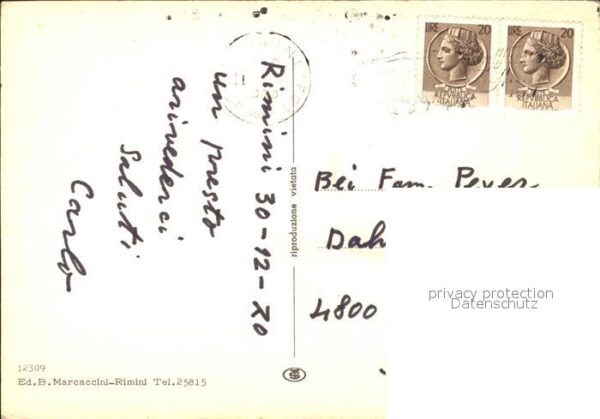 Rimini 30-12-70
un presto
arivederci
Saluti
Carlo
riproduzione vietata
LIRE 20
REPUBBLICA
ITALIANA
LIRE 20
REPUBBLICA
ITALIANA
Bei Fam. Peyer
Dah
4800
privacy protection
Datenschutz
12309
Ed.B. Marcaccini-Rimini Tel.25815